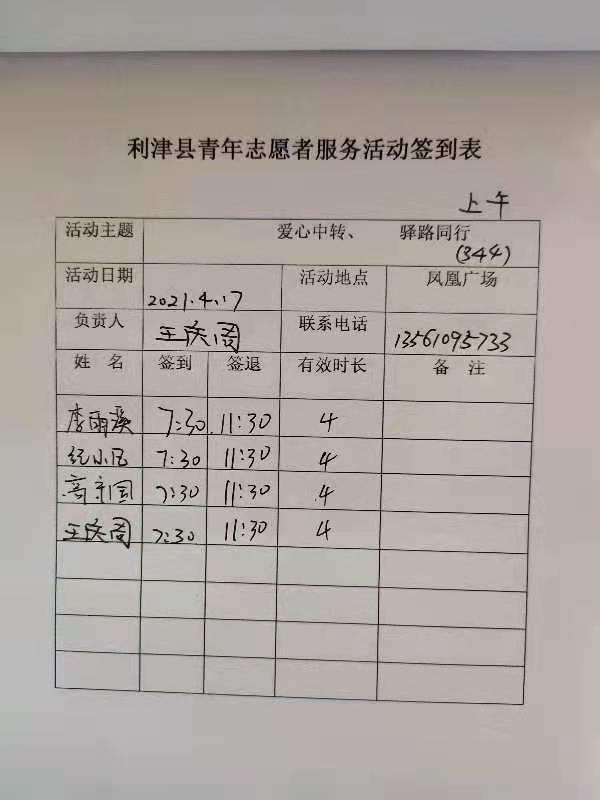 利津县青年志愿者服务活动签到表
上午
活动主题 爱心中转、 驿路同行
(344)
活动日期 2021.4.17 活动地点 凤凰广场
负责人 王庆周 联系电话 13561095733
姓 名 签到 签退 有效时长 备 注
李雨溪 7:30 11:30 4
纪小民 7:30 11:30 4
高守国 7:30 11:30 4
王庆周 7:30 11:30 4